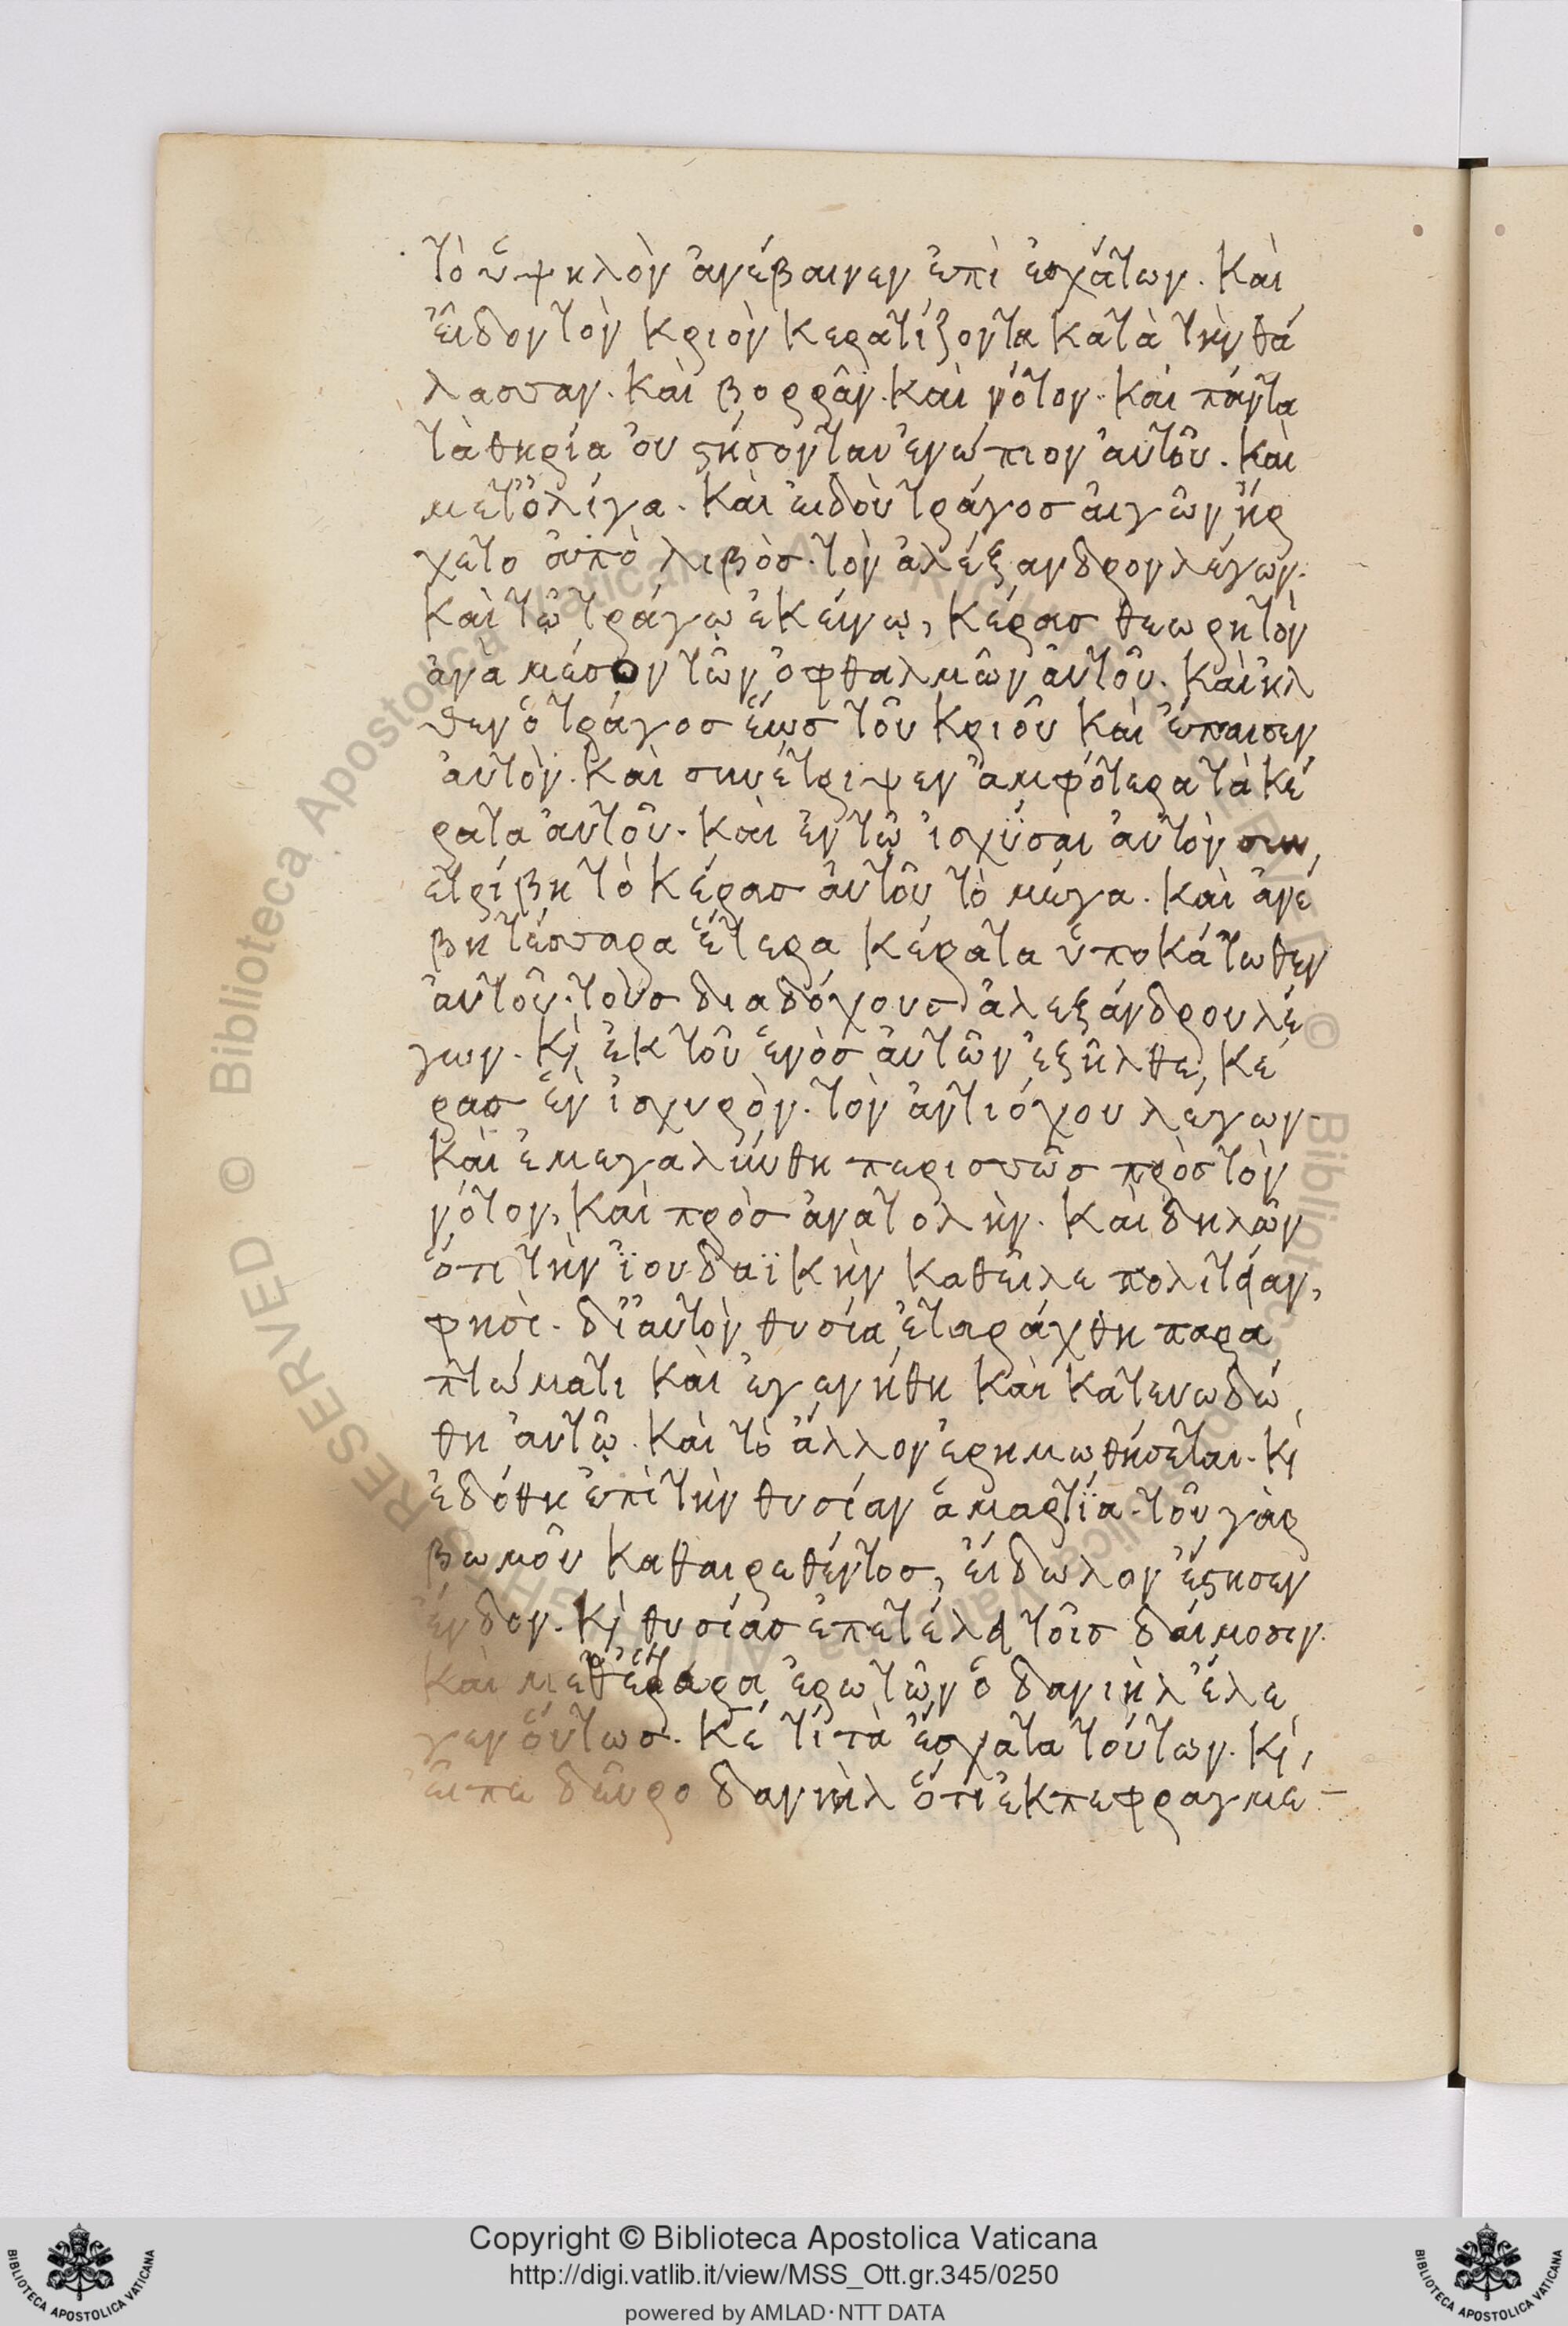 τὸ ὑψηλὸν ἀνέβαινεν ἐπὶ ἐσχάτων. Καὶ
εἶδον τὸν κριὸν κερατίζοντα κατὰ τὴν θά
λασσαν. Καὶ βορρᾶν. Καὶ νότον. Καὶ πάντα
τὰ θηρία οὐ στήσονται ἐνώπιον αὐτοῦ. Καὶ
μετ' ὀλίγα. Καὶ ἰδοὺ τράγος αἰγῶν ἤρ
χετο ἀπὸ λιβὸς. τὸν ἀλέξανδρον λέγων.
Καὶ τῷ τράγῳ ἐκείνῳ, κέρας θεωρητὸν
ἀνὰ μέσον τῶν ὀφθαλμῶν αὐτοῦ. Καὶ ἦλ
θεν ὁ τράγος ἕως τοῦ κριοῦ καὶ ἔπαισεν
αὐτὸν. Καὶ συνέτριψεν ἀμφότερα τὰ κέ
ρατα αὐτοῦ. Καὶ ἐν τῷ ἰσχῦσαι αὐτὸν συν
ετρίβη τὸ κέρας αὐτοῦ τὸ μέγα. Καὶ ἀνέ
βη τέσσαρα ἕτερα κέρατα ὑποκάτωθεν
αὐτοῦ. τοὺς διαδόχους ἀλεξάνδρου λέ
γων. Κ ἐκ τοῦ ἑνὸς αὐτῶν ἐξῆλθε, κέ
ρας ἓν ἰσχυρὸν. τὸν ἀντιόχου λέγων.
Καὶ ἐμεγαλύνθη περισσῶς πρὸς τὸν
νότον, καὶ πρὸς ἀνατολὴν. Καὶ δηλῶν
ὅτι τὴν ἰουδαϊκὴν καθεῖλε πολιτείαν,
φησὶ. δι' αὐτὸν θυσία ἐταράχθη παρα
πτώματι καὶ ἐγενήθη καὶ κατευωδώ
θη αὐτῷ. Καὶ τὸ ἄλλον ἐρημωθήσεται. Κ
ἐδόθη ἐπὶ τὴν θυσίαν ἁμαρτία. τοῦ γὰρ
βωμοῦ καθαιρεθέντος, εἴδωλον ἔστησεν
ἔνδον. Κ θυσίας ἐπετέλει τοῖς δαίμοσιν.
Καὶ μεθ' ἕτερα ἐρωτῶν ὁ δανιὴλ ἔλε
γεν οὕτως. Κέ τί τὰ ἔσχατα τούτων. Κ
εἶπε δεῦρο δανιὴλ ὅτι ἐκπεφραγμέ
Copyright © Biblioteca Apostolica Vaticana
http://digi.vatlib.it/view/MSS_Ott.gr.345/0250
powered by AMLAD·NTT DATA